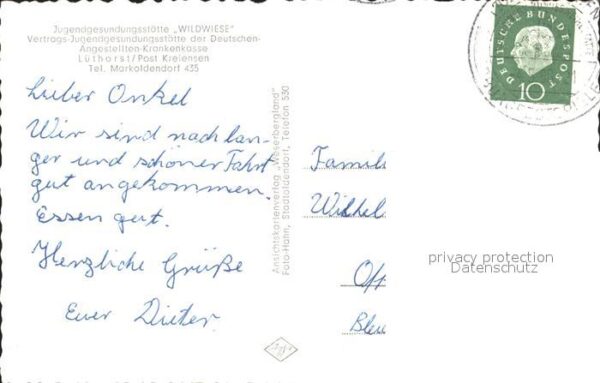 Jugendgesundungsstätte „WILDWIESE"
Vertrags-Jugendgesundungsstätte der Deutschen-
Angestellten-Krankenkasse
Lüthorst/Post Kreiensen
Tel. Markoldendorf 435
Lieber Onkel
Wir sind nach lan-
ger und schöner Fahrt
gut angekommen.
Essen gut.
Herzliche Grüße
Euer Dieter
Ansichtskartenvertag „Weserbergland"
Foto-Hann, Stadtoldendorf, Telefon 530
DEUTSCHE BUNDESPOST
10
Famili
Wilhel
Off
Bleu
privacy protection
Datenschutz
Agfa